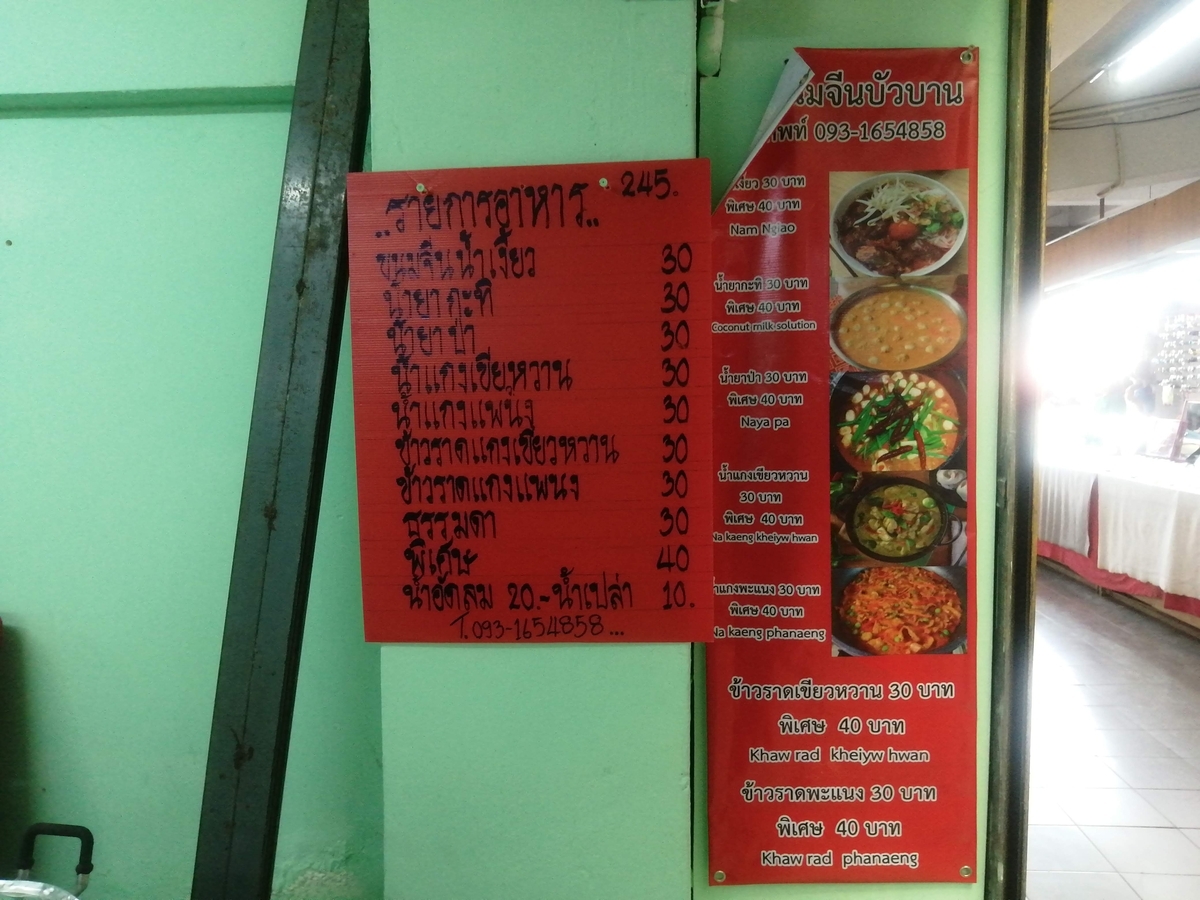 ..รายการอาหาร.. 245.
ขนมจีนน้ำเงี้ยว 30
น้ำยากะทิ 30
น้ำยาป่า 30
น้ำแกงเขียวหวาน 30
น้ำแกงแพนง 30
ข้าวราดแกงเขียวหวาน 30
ข้าวราดแกงแพนง 30
ธรรมดา 30
พิเศษ 40
น้ำอัดลม 20.-น้ำเปล่า 10.
T.093-1654858...
มจีนบัวบาน
093-1654858
30 บาท
พิเศษ 40 บาท
Nam Ngiao
น้ำยากะทิ 30 บาท
พิเศษ 40 บาท
Coconut milk solution
น้ำยาป่า 30 บาท
พิเศษ 40 บาท
Naya pa
น้ำแกงเขียวหวาน
30 บาท
พิเศษ 40 บาท
Na kaeng kheiyw hwan
น้ำแกงพะแนง 30 บาท
พิเศษ 40 บาท
Na kaeng phanaeng
ข้าวราดเขียวหวาน 30 บาท
พิเศษ 40 บาท
Khaw rad kheiyw hwan
ข้าวราดพะแนง 30 บาท
พิเศษ 40 บาท
Khaw rad phanaeng